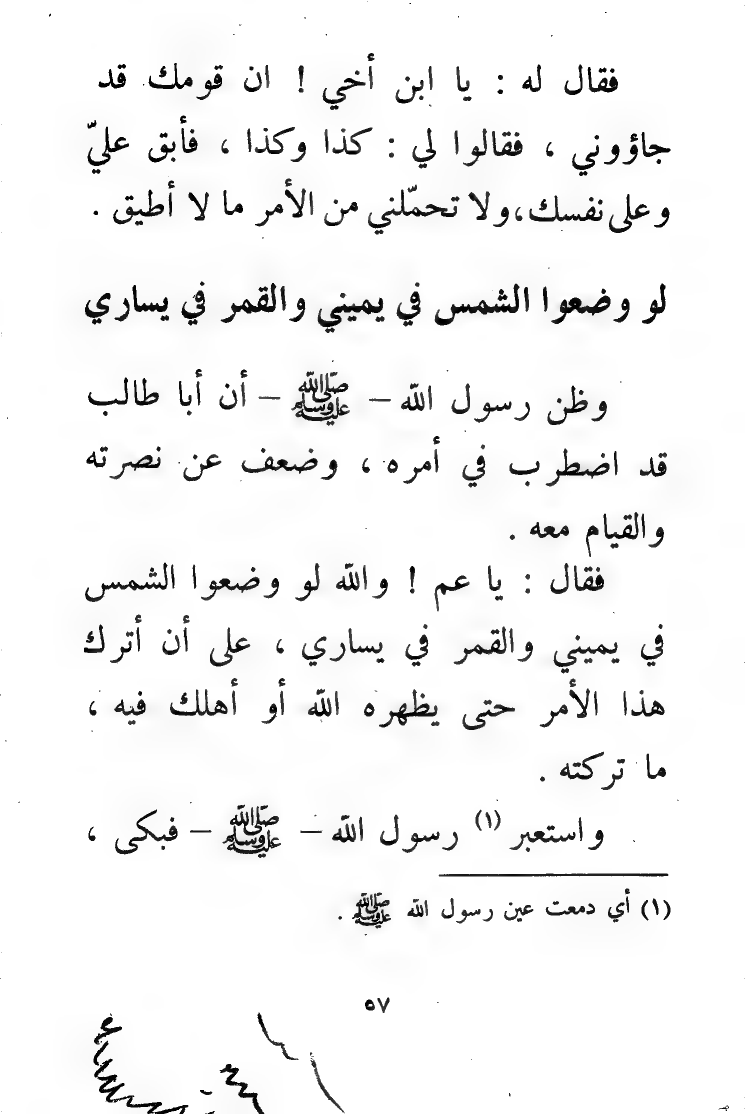 فقال له : يا ابن أخي ! ان قومك قد
جاؤوني ، فقالوا لي : كذا وكذا ، فأبق عليّ
وعلى نفسك،ولا تحمّلني من الأمر ما لا أطيق .
لو وضعوا الشمس في يميني والقمر في يساري
وظن رسول الله – ﷺ – أن أبا طالب
قد اضطرب في أمره ، وضعف عن نصرته
والقيام معه .
فقال : يا عم ! والله لو وضعوا الشمس
في يميني والقمر في يساري ، على أن أترك
هذا الأمر حتى يظهره الله أو أهلك فيه ،
ما تركته .
واستعبر (١) رسول الله – ﷺ – فبكى ،
(١) أي دمعت عين رسول الله ﷺ .
٥٧